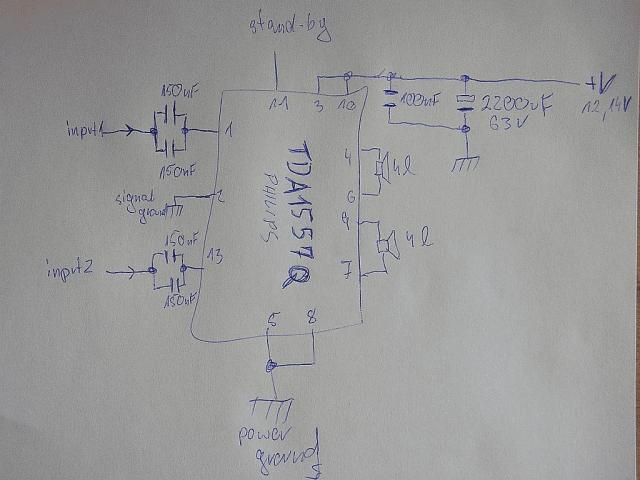 stand-by
150nF
11
3
10
100nF
2200uF
63V
+V
12,14V
input1
1
150nF
TDA1557Q
PHILIPS
4
4Ω
6
signal
ground
2
9
4Ω
7
150nF
input2
13
150nF
5
8
power
ground